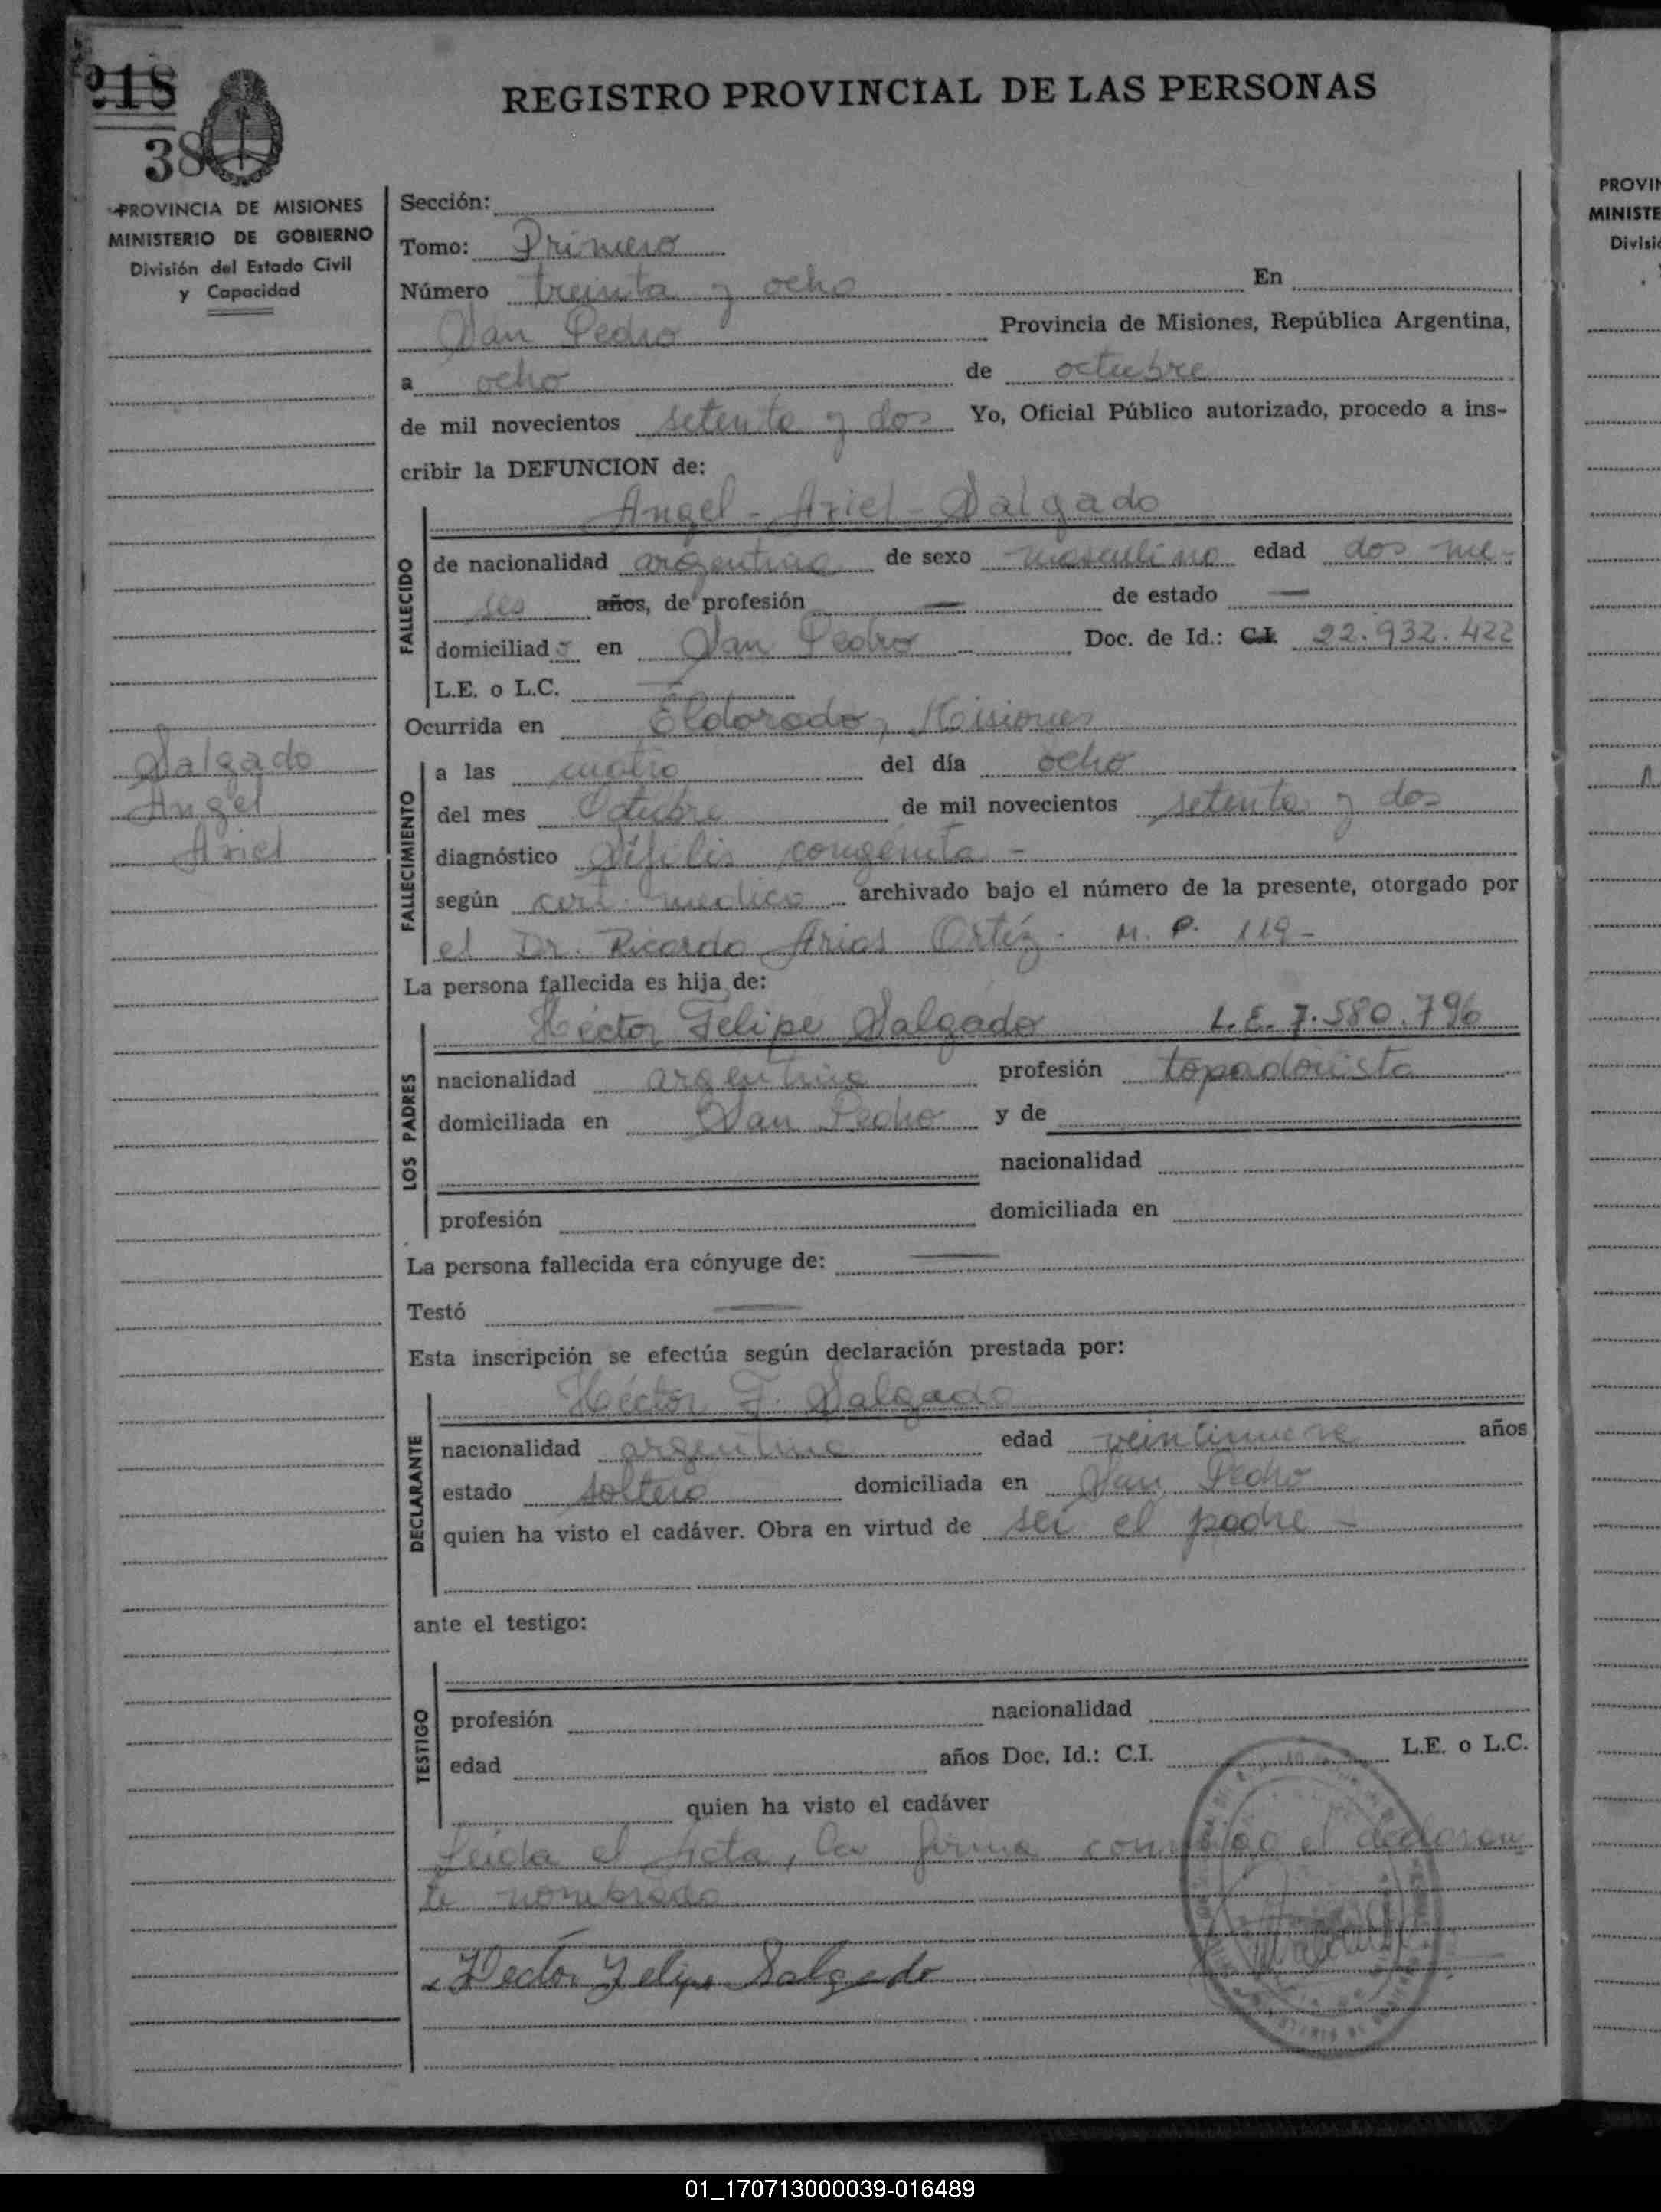 218
38
REGISTRO PROVINCIAL DE LAS PERSONAS
PROVINCIA DE MISIONES
MINISTERIO DE GOBIERNO
División del Estado Civil
y Capacidad
Salgado
Angel
Ariel
Sección:
Tomo: Primero
Número treinta y ocho En
San Pedro Provincia de Misiones, República Argentina,
a ocho de octubre
de mil novecientos setenta y dos Yo, Oficial Público autorizado, procedo a ins-
cribir la DEFUNCION de:
FALLECIDO
Angel - Ariel - Salgado
de nacionalidad argentina de sexo masculino edad dos me-
ses años, de profesión — de estado —
domiciliado en San Pedro Doc. de Id.: C.I. 22.932.422
L.E. o L.C. —
Ocurrida en Eldorado, Misiones
FALLECIMIENTO
a las cuatro del día ocho
del mes Octubre de mil novecientos setenta y dos
diagnóstico Sífilis congénita -
según cert. medico archivado bajo el número de la presente, otorgado por
el Dr. Ricardo Arias Ortíz - M. P. 119-
La persona fallecida es hija de:
LOS PADRES
Héctor Felipe Salgado L.E. 7.580.796
nacionalidad argentina profesión topadorista
domiciliada en San Pedro y de
nacionalidad
profesión domiciliada en
La persona fallecida era cónyuge de: —
Testó —
Esta inscripción se efectúa según declaración prestada por:
DECLARANTE
Héctor F. Salgado
nacionalidad argentina edad veintinueve años
estado soltero domiciliada en San Pedro
quien ha visto el cadáver. Obra en virtud de ser el padre -
ante el testigo:
TESTIGO
profesión nacionalidad
edad años Doc. Id.: C.I. L.E. o L.C.
quien ha visto el cadáver
Leida el Acta, la firma conmigo el declaran
te nombrado
Hector Felipe Salgado
PROVIN
MINISTE
Divisió
01_170713000039-016489